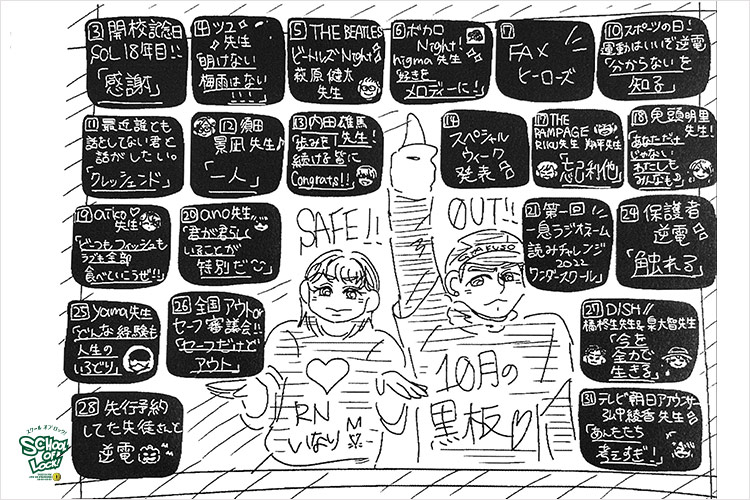 3 開校記念日
SOL 18年目!!
「感謝」
4 ツユ
先生
「明けない
梅雨はない
!!!」
5 THE BEATLES
ビートルズNight
萩原健太
先生
6 ボカロ
Night!
nigma先生
「好きを
メロディーに!」
7
FAX
ヒーローズ
10 スポーツの日!
運動はいいぞ逆電
「分からないを
知る」
11 最近誰とも
話をしてない君と
話がしたい。
「クレッシェンド」
12 須田
景凪 先生
「一人」
13 内田雄馬
先生!
「歩みを
続ける皆に
Congrats!!」
14
スペシャル
ウィーク
発表
17 THE
RAMPAGE
RIKU先生 翔平先生
「忘己利他」
18 鬼頭明里
先生!
「あなただけ
じゃない
わたしも
みんなも」
SAFE!!
OUT!!
19 aiko
先生
「どっちもフィッシュも
ラブも全部
食べていこうぜ!!」
20 ano先生
「君が君らしく
いることが
特別だ」
21 第一回
一息ラジオネーム
読みチャレンジ
2022
「ワンダースクール」
24 保護者
逆電
「触れる」
25 yama先生
「どんな経験も
人生の
いろどり」
26 全国アウトor
セーフ審議会!!
「セーフだけど
アウト」
27 DISH//
橘柊生先生&泉大智先生
「今を
全力で
生きる」
28 先行予約
してた生徒さんと
逆電
RN
いなりM
10月の
黒板
31 テレビ朝日アナウンサー
弘中綾香先生
「あんたたち
考えすぎ!」
スクールオブロック!
SCHOOL
OF
LOCK!